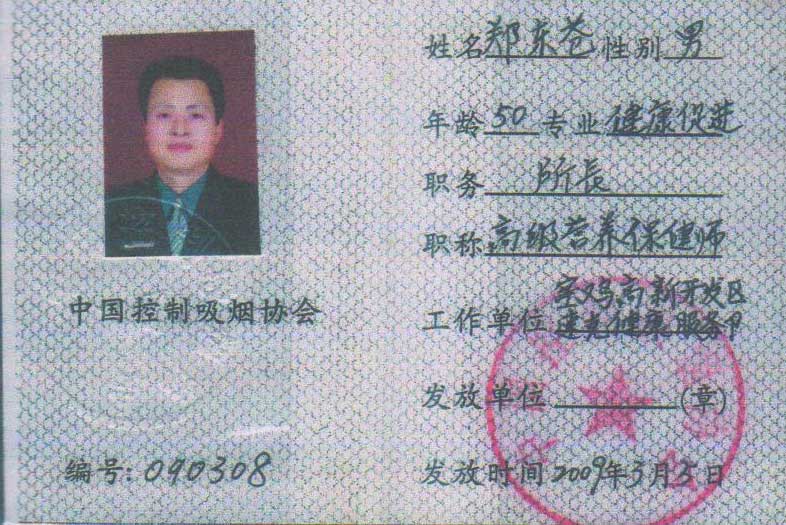 姓名 郑东苍 性别 男
年龄 50 专业 健康促进
职务 所长
职称 高级营养保健师
宝鸡高新开发区
工作单位 健康服务
发放单位 (章)
发放时间 2009年3月5日
中国控制吸烟协会
编号: 090308